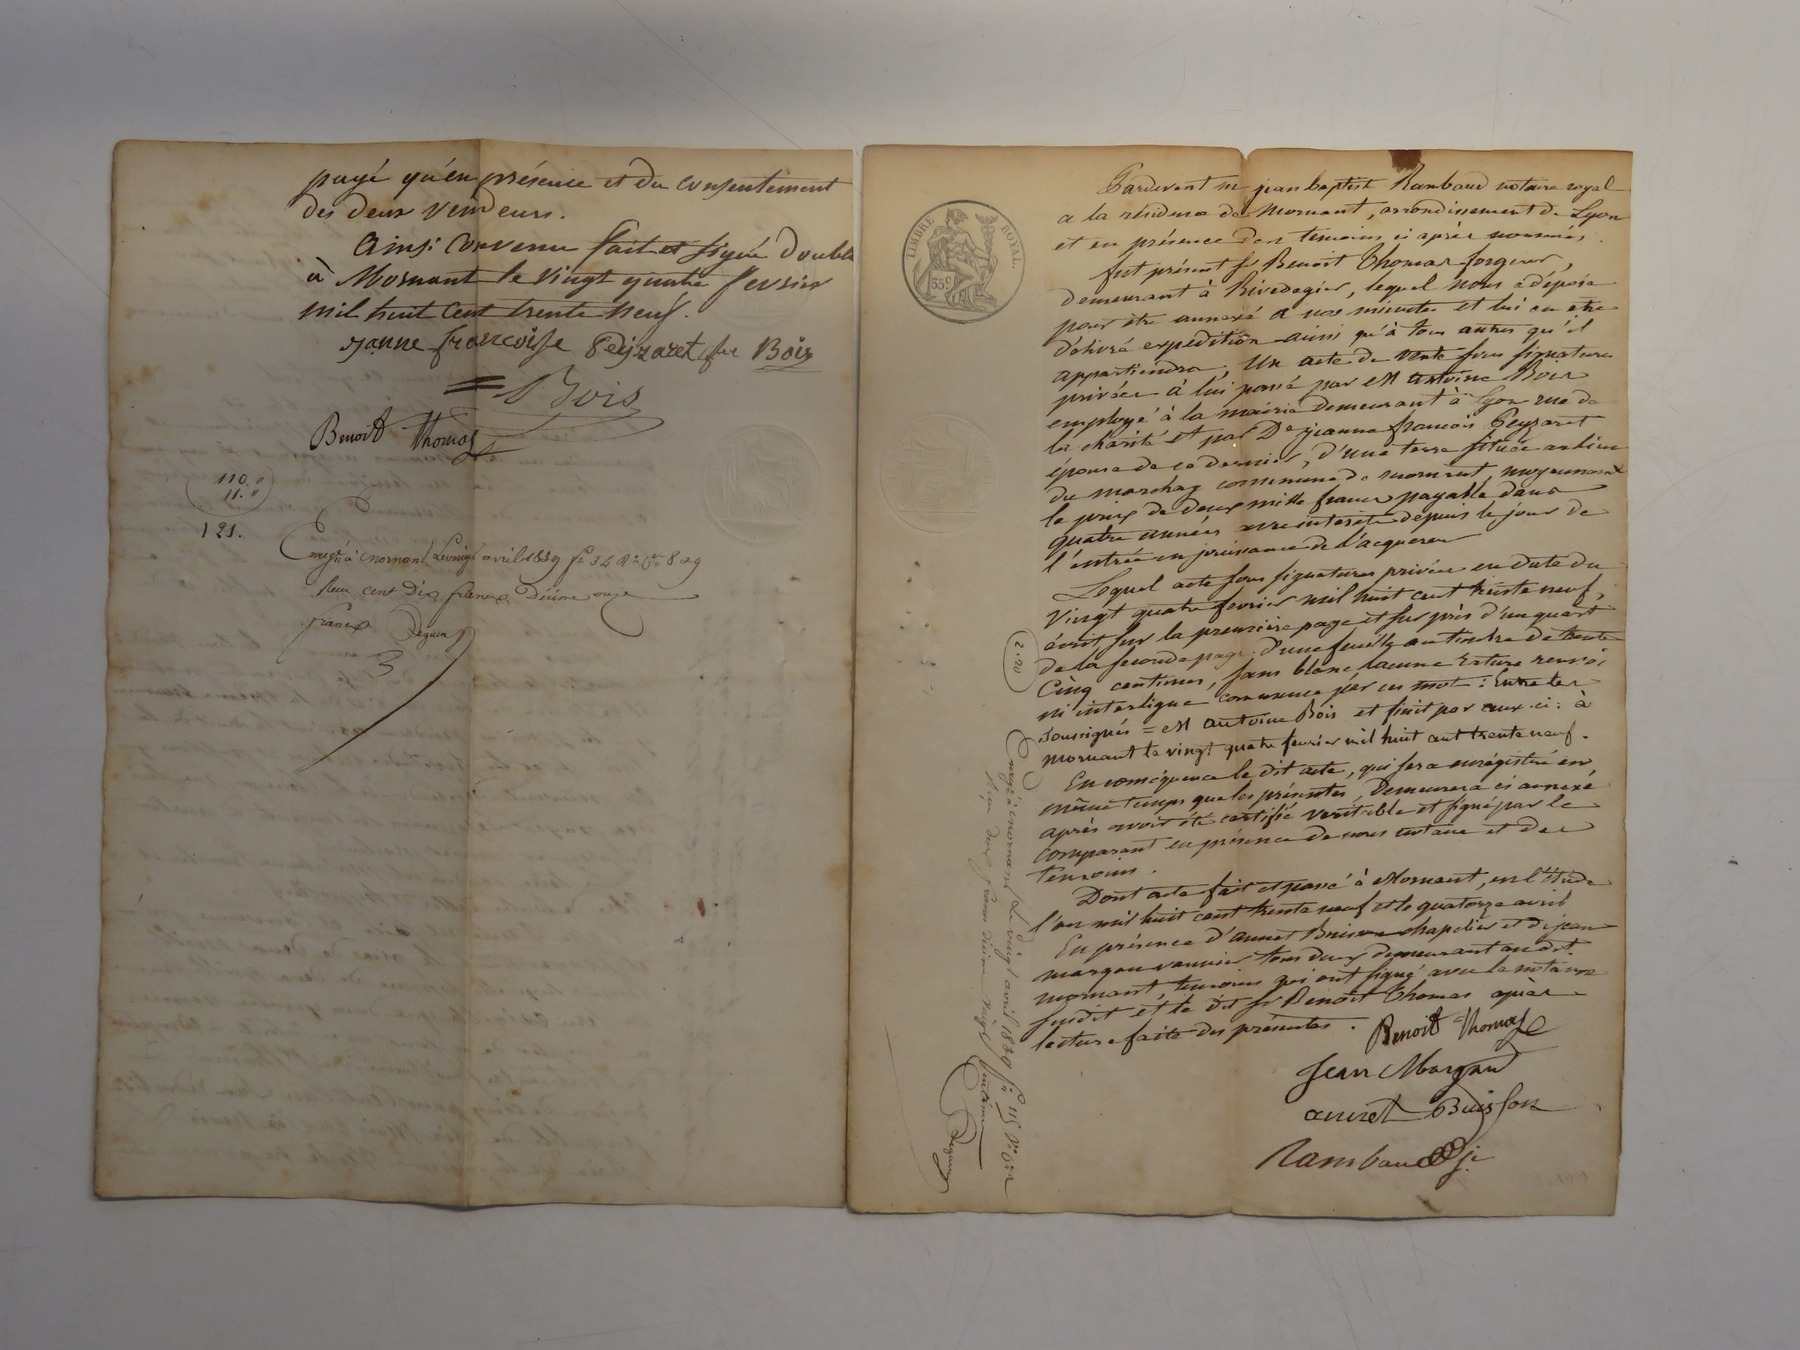 payé qu'en présence et du consentement
des deux vendeurs.
Ainsi convenu fait et signé double
à Mornant le vingt quatre fevrier
mil huit cent trente neuf.
janne françoisse Peyzaret fee Bois
= Bois
Benoit Thomas
110. "
11. "
121.
Enregté à Mornant Le vingt avril 1839 fo 34
Reçu cent Dix francs Décime onze
francs
TIMBRE ROYAL.
35 c
Pardevant me jean baptiste Rambaud notaire royal
a la résidence de Mornant, arrondissement de Lyon
et en présence des temoins ci après nommés.
fut présent sr Benoit Thomas forgeur,
demeurant à Rivedegier, lequel nous a déposé
pour être annexé a nos minutes et lui en etre
délivré expédition ainsi qu'à tous autres qu'il
appartiendra, Un acte de vente sous signatures
privées à lui passé par M antoine Bois
employé à la mairie demeurant à Lyon rue de
la charité et par De jeanne francois Peyzaret
épouse de ce dernier, d'une terre située au lieu
du marchay commune de mornant, moyennant
le prix de deux mille francs payable dans
quatre années avec interets depuis le jour de
l'entrée en jouissance de l'acquéreur
Lequel acte sous signatures privées en date du
vingt quatre fevrier mil huit cent trente neuf,
écrit sur la premiere page et sur près d'un quart
de la seconde page d'une feuille au timbre de trente
Cinq centimes, sans blanc lacune rature renvoi
ni interligne commence par ces mot: Entre les
soussignés = M antoine Bois et finit par ceux ci: à
mornant le vingt quatre fevrier mil huit cent trente neuf.
En conséquence le dit acte, qui sera enrégistré en
même temps que les présentes, Demeurera ci annexé
après avoir été certifié veritable et signé par le
comparant en présence de nous notaire et des
temoins.
Dont acte fait et passé à Mornant, en l'étude
l'an mil huit cent trente neuf et le quatorze avril
En présence d'annet Buisson chapelier et de jean
margan vannier tous deux demeurant au dit
mornant, temoins qui ont signé avec le notaire
susdit et le dit sr Benoit Thomas après
lecture faite des présentes.
Benoit Thomas
Jean Margand
annet Buisson
Rambaud
2.20
Enregté à Mornant Le vingt avril 1839 fo 115
Reçu deux francs décime vingt centimes